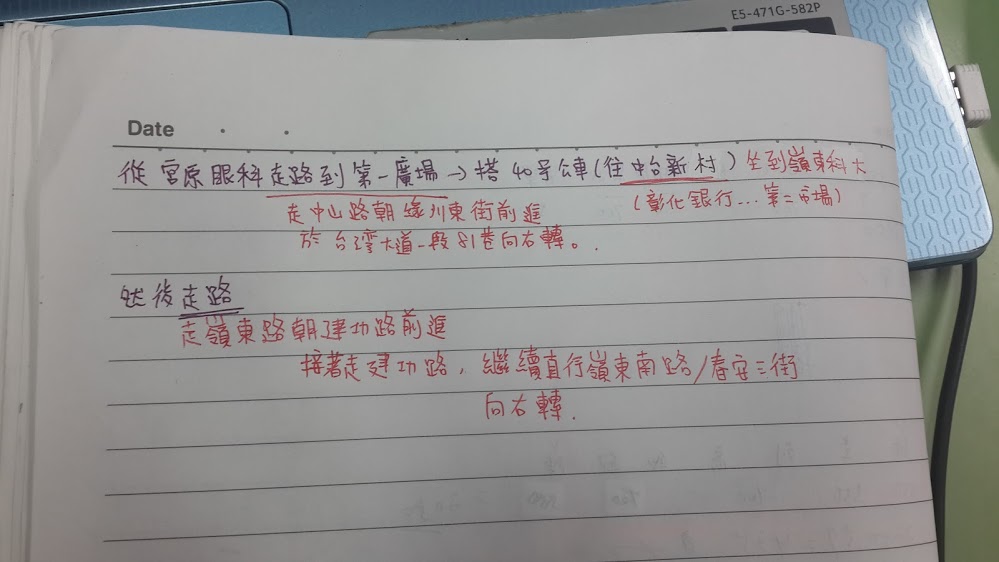 E5-471G-582P
Date
從宮原眼科走路到第一廣場→搭40号公車(往中台新村)坐到嶺東科大
走中山路朝綠川東街前進 (彰化銀行...第二市場)
於台湾大道一段81巷向右轉。
然後走路
走嶺東路朝建功路前進
接著走建功路,繼續直行嶺東南路/春安三街
向右轉.